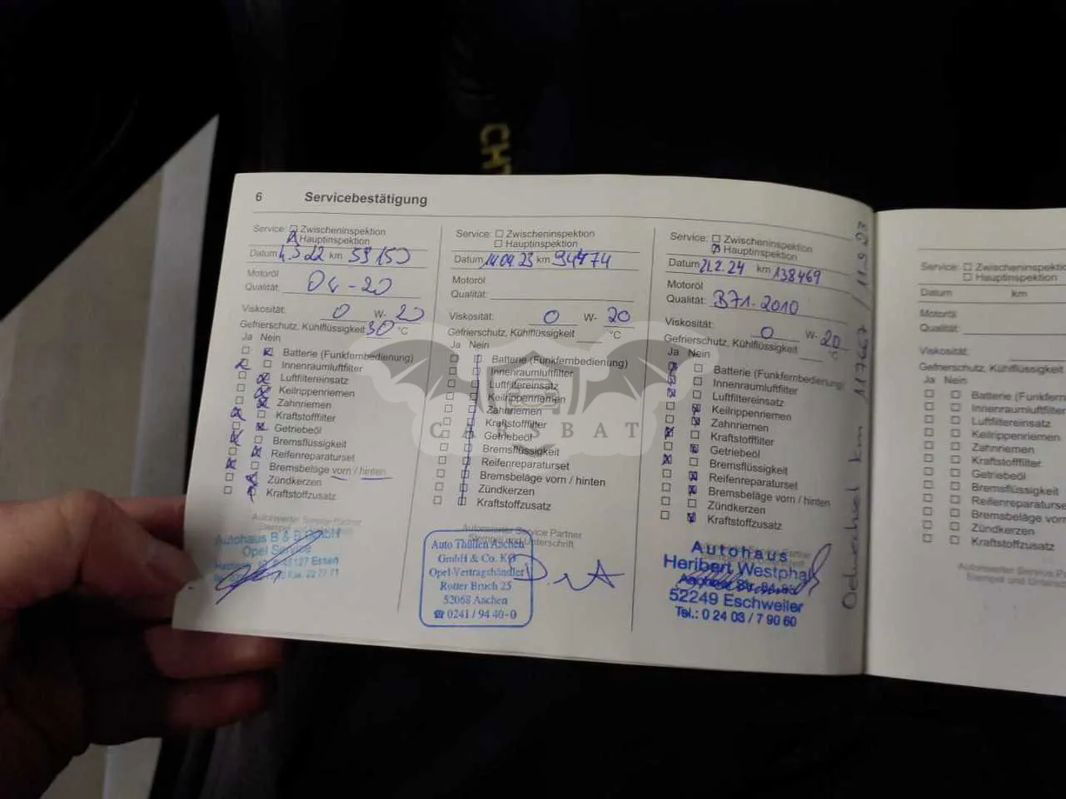 CHT
6 Servicebestätigung
Service: Zwischeninspektion
Hauptinspektion
Datum 1.3.22 km 59150
Motoröl
Qualität: 04-20
Viskosität: 0 W- 20
Gefrierschutz, Kühlflüssigkeit 30 °C
Ja Nein
Batterie (Funkfernbedienung)
Innenraumluftfilter
Luftfiltereinsatz
Keilrippenriemen
Zahnriemen
Kraftstofffilter
Getriebeöl
Bremsflüssigkeit
Reifenreparaturset
Bremsbeläge vorn / hinten
Zündkerzen
Kraftstoffzusatz
Autorisierter Service Partner
Stempel und Unterschrift
Autohaus B & B GmbH
Opel Service
45127 Essen
Service: Zwischeninspektion
Hauptinspektion
Datum 14.04.23 km 94774
Motoröl
Qualität:
Viskosität: 0 W- 20
Gefrierschutz, Kühlflüssigkeit °C
Ja Nein
Batterie (Funkfernbedienung)
Innenraumluftfilter
Luftfiltereinsatz
Keilrippenriemen
Zahnriemen
Kraftstofffilter
Getriebeöl
Bremsflüssigkeit
Reifenreparaturset
Bremsbeläge vorn / hinten
Zündkerzen
Kraftstoffzusatz
Autorisierter Service Partner
Stempel und Unterschrift
Auto Thüllen Aachen
GmbH & Co. KG
Opel-Vertragshändler
Rotter Bruch 25
52068 Aachen
☎ 0241 / 94 40-0
Service: Zwischeninspektion
Hauptinspektion
Datum 21.2.24 km 138469
Motoröl
Qualität: B71-2010
Viskosität: 0 W- 20
Gefrierschutz, Kühlflüssigkeit °C
Ja Nein
Batterie (Funkfernbedienung)
Innenraumluftfilter
Luftfiltereinsatz
Keilrippenriemen
Zahnriemen
Kraftstofffilter
Getriebeöl
Bremsflüssigkeit
Reifenreparaturset
Bremsbeläge vorn / hinten
Zündkerzen
Kraftstoffzusatz
Autohaus
Heribert Westphal
52249 Eschweiler
Tel.: 0 24 03 / 7 90 60
km 117667
CARSBAT
Service: Zwischeninspektion
Hauptinspektion
Datum km
Motoröl
Qualität:
Viskosität:
Gefrierschutz, Kühlflüssigkeit
Ja Nein
Batterie
Innenraumluftfilter
Luftfiltereinsatz
Keilrippenriemen
Zahnriemen
Kraftstofffilter
Getriebeöl
Bremsflüssigkeit
Reifenreparaturset
Bremsbeläge
Zündkerzen
Kraftstoffzusatz
Autorisierter
Stempel und